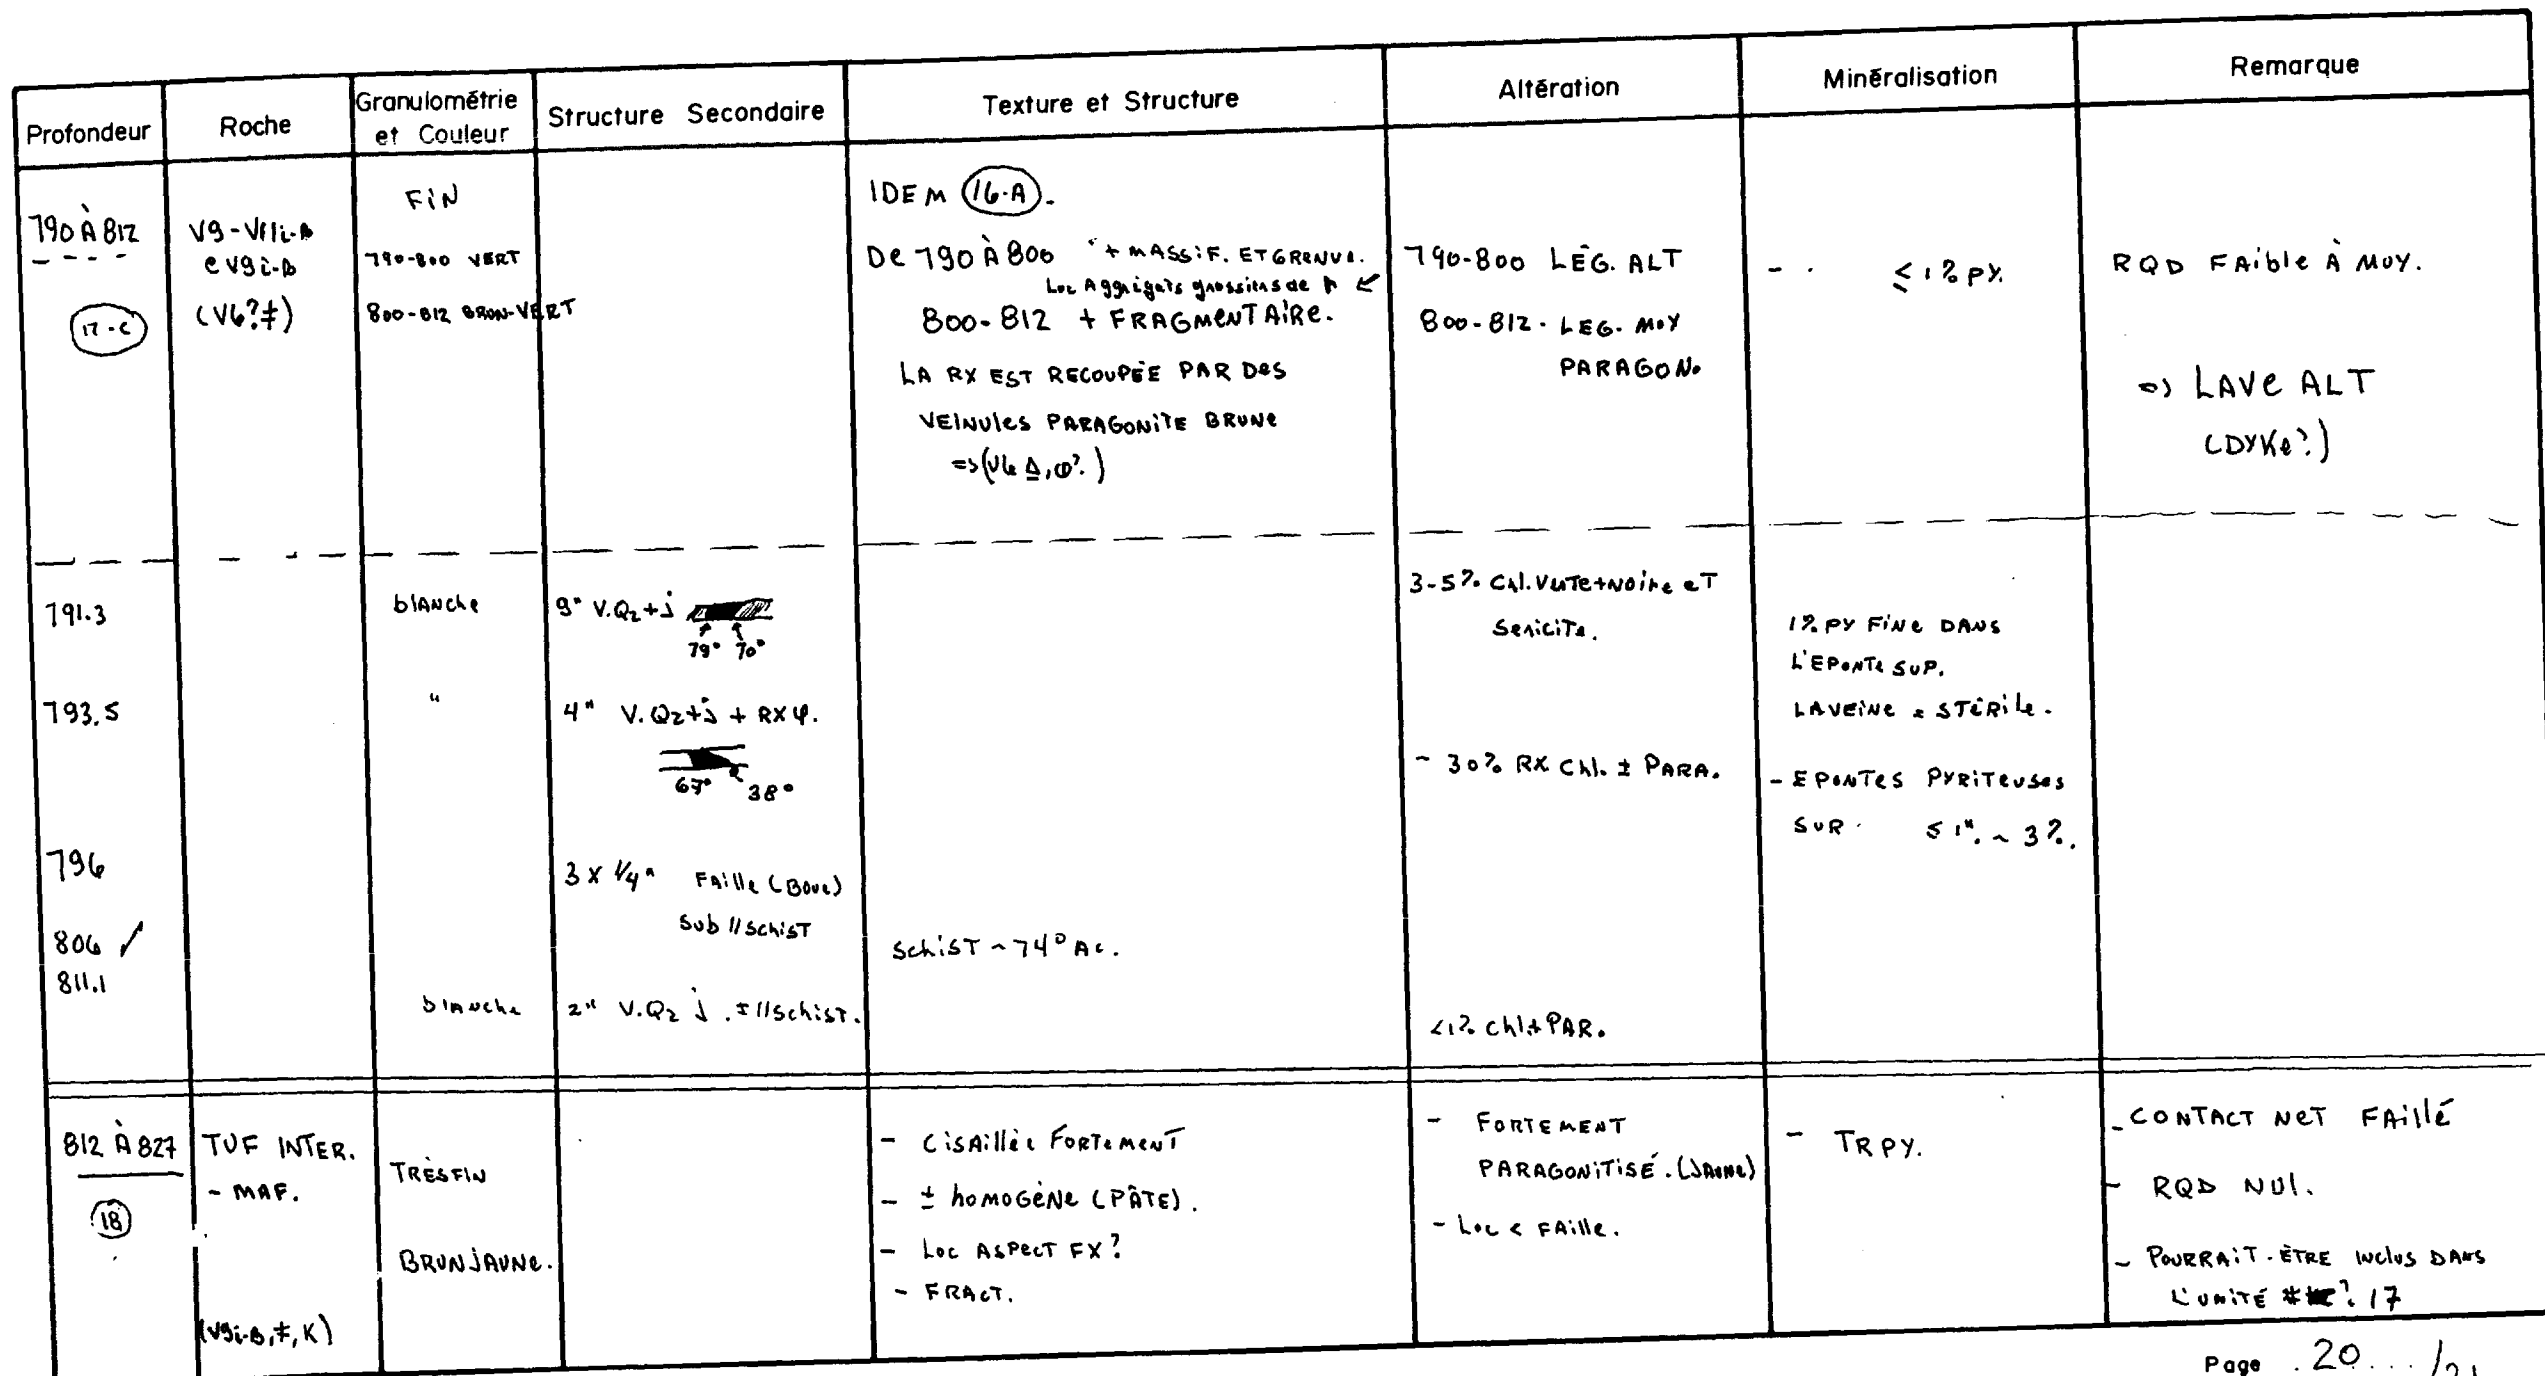 Profondeur Roche Granulométrie et Couleur Structure Secondaire Texture et Structure Altération Minéralisation Remarque
790 À 812
17-C
V9-V11i-B
eV9i-B
(V6?‡)
FIN
790-800 VERT
800-812 BRUN-VERT
IDEM 16-A.
De 790 À 800 + MASSIF. ET GRENU.
Loc Aggrigats grossiers de
800-812 + FRAGMENTAIRE.
LA RX EST RECOUPÉE PAR DES
VEINULES PARAGONITE BRUNE
790-800 LÉG. ALT
800-812. LEG. MOY
PARAGON.
≤ 1% PY.
RQD FAible À MOY.
=> LAVE ALT
(DYKe?)
791.3
blanche
9" V.Qz+j
79° 70°
3-5% Chl. Verte+Noire et
Sericite.
1% PY FINE DANS
L'EPONTE SUP.
LA VEINE = STÉRILE.
793.5
"
4" V.Qz+j + RX φ.
67° 38°
~ 30% RX Chl. ± PARA.
- EPONTES PYRITEUSES
SUR ≤ 1". ~ 3%.
796
3 X 1/4" FAILLE (BOUE)
Sub // SCHIST
806 ✓
SCHIST ~ 74° AC.
811.1
blanche
2" V.Qz j. ± // SCHIST.
<1% Chl+PAR.
812 À 827
18
TUF INTER.
- MAF.
(V9i-B,‡,K)
TRÈS FIN
BRUN JAUNE.
- CISAILLÉE FORTEMENT
- ± HOMOGÈNE (PÂTE).
- Loc ASPECT FX?
- FRACT.
- FORTEMENT
PARAGONITISÉ. (JAUNE)
- Loc < FAILLE.
- TR PY.
- CONTACT NET FAILLÉ
- RQD NUL.
- POURRAIT-ÊTRE INCLUS DANS
L'UNITÉ # ? 17
Page 20